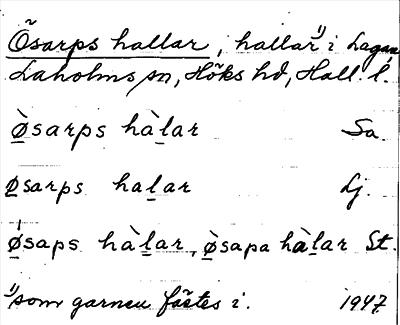 Õsarps hallar, hallar¹⁾ i Lagan
Laholms sn, Höks hd, Hall. l.
ø̱̀sarps hàḻar Sa.
ø̱sarps haḻar Lj.
ǿ̱saps hàḻar, ø̱̀sapa hàḻar St.
¹⁾som garnen fästes i. 1947.